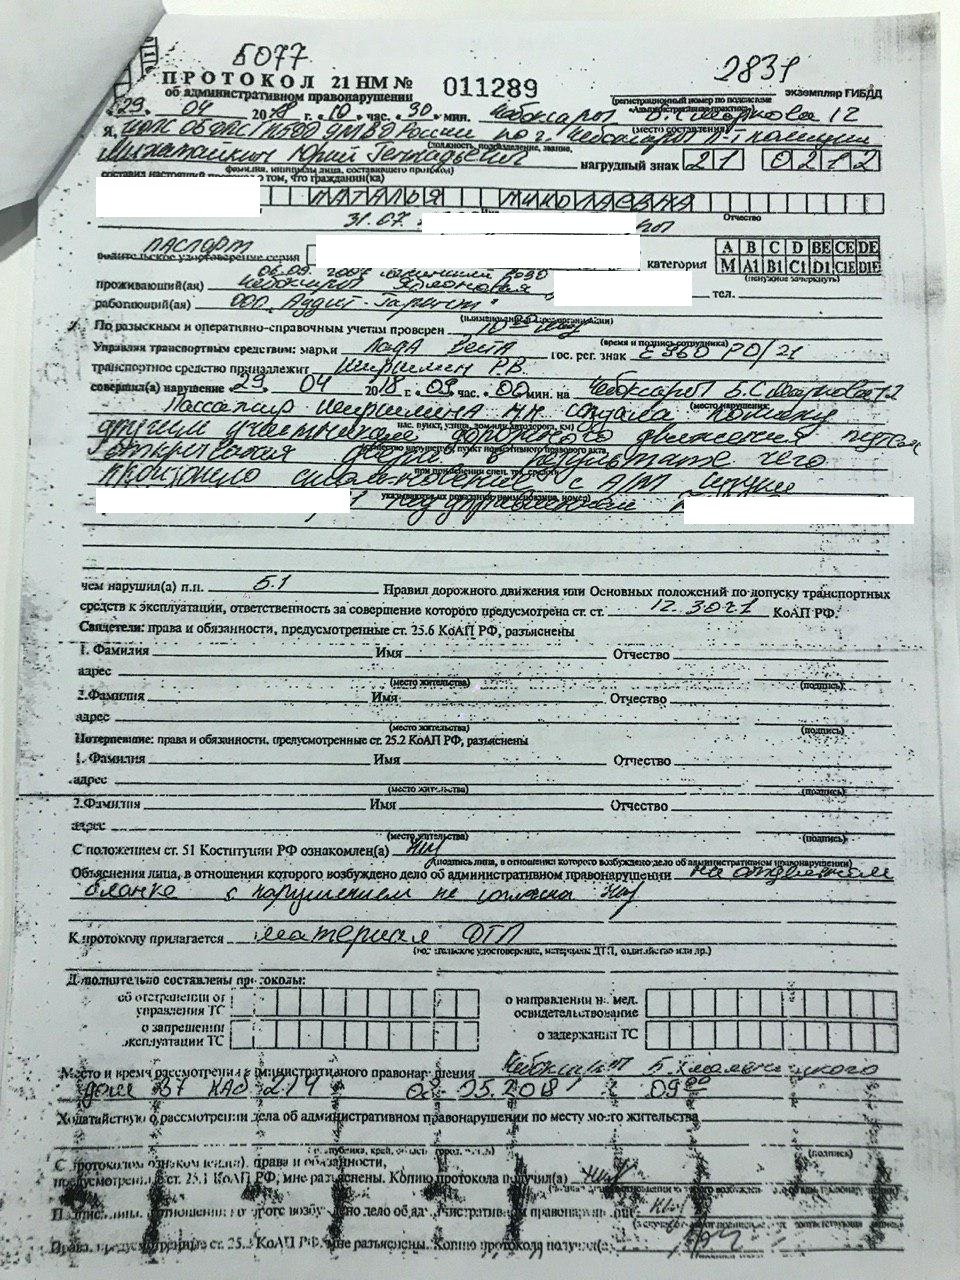 5077
2831
ПРОТОКОЛ 21 НМ № 011289
об административном правонарушении
экземпляр ГИБДД
(регистрационный номер по подсистеме
«Административная практика»)
«29» 04 2018 г. «10» час. «30» мин. Чебоксары 12
(место составления)
Я, ИДПС ОБДПС ГИБДД УМВД России по г. Чебоксары
(должность, подразделение, звание,
Михатайкин Юрий Геннадьевич нагрудный знак 21 0212
фамилия, инициалы лица, составившего протокол)
составил настоящий протокол о том, что гражданин(ка)
НАТАЛЬЯ НИКОЛАЕВНА
Имя Отчество
31.07.
паспорт
водительское удостоверение серия категория A B C D BE CE DE
M A1 B1 C1 D1 C1E D1E
(ненужное зачеркнуть)
проживающий(ая) Чебоксары тел.
работающий(ая) ООО "Аудит-Гарант"
По разыскным и оперативно-справочным учетам проверен 10
(время и подпись сотрудника)
Управляя транспортным средством: марки Лада Веста гос. рег. знак Е 960 РО/21
транспортное средство принадлежит Ширшилин Р.В.
совершил(а) нарушение 29. 04 2018 г. «09» час. «00» мин. на Чебоксары
(место нарушения:
нас. пункт, улица, дом или автодорога, км)
Пассажир Ширшилина Н.Н. создала помеху
другим участникам дорожного движения путем
открывания двери, в результате чего
произошло столкновение с А/М
под управлением
чем нарушил(а) п.п. 5.1 Правил дорожного движения или Основных положений по допуску транспортных
средств к эксплуатации, ответственность за совершение которого предусмотрена ст. ст. 12.30ч1 КоАП РФ.
Свидетели: права и обязанности, предусмотренные ст. 25.6 КоАП РФ, разъяснены
1. Фамилия Имя Отчество
адрес
(место жительства) (подпись)
2.Фамилия Имя Отчество
адрес
(место жительства) (подпись)
Потерпевшие: права и обязанности, предусмотренные ст. 25.2 КоАП РФ, разъяснены
1. Фамилия Имя Отчество
адрес
(место жительства) (подпись)
2.Фамилия Имя Отчество
адрес
(место жительства) (подпись)
С положением ст. 51 Коституции РФ ознакомлен(а)
(подпись лица, в отношении которого возбуждено дело об административном правонарушении)
Объяснения лица, в отношении которого возбуждено дело об административном правонарушении на отдельном
бланке с нарушением не согласна
К протоколу прилагается материал ДТП
Дополнительно составлены протоколы:
об отстранении от
управления ТС
о направлении на мед.
освидетельствование
о запрещении
эксплуатации ТС
о задержании ТС
Место и время рассмотрения административного правонарушения Чебоксары Б.Хмельницкого
дом 37 каб 214 05.2018 09 00
Ходатайствую о рассмотрении дела об административном правонарушении по месту моего жительства
(подпись)
С протоколом ознакомлен(а), права и обязанности,
предусмотренные ст. 25.1 КоАП РФ, мне разъяснены. Копию протокола получил(а)
Права, предусмотренные ст. 25. КоАП РФ, мне разъяснены. Копию протокола получил(а)